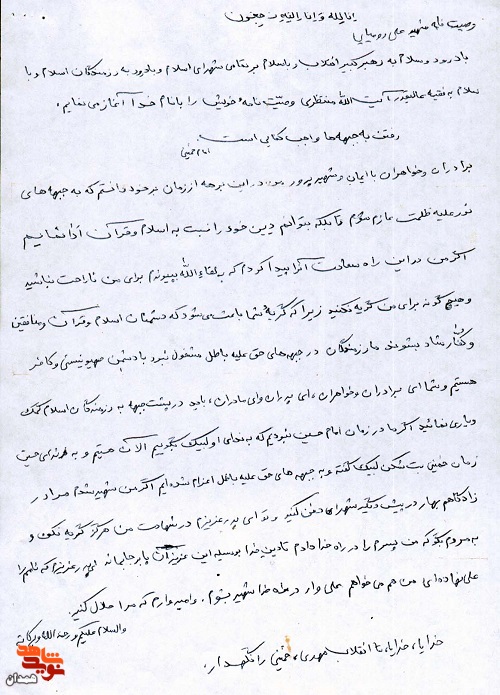 انا لله و انا الیه راجعون
وصیت نامه شهید علی رومیانی
با درود و سلام به رهبر کبیر انقلاب و با سلام بر تمامی شهدای اسلام و با درود به رزمندگان اسلام و با
سلام به فقیه عالیقدر آیت الله منتظری وصیت نامه خویش را با نام خدا آغاز می نمایم.
رفتن به جبهه ها واجب کفایی است.
امام خمینی
برادران و خواهران با ایمان و شهید پرور من در این برهه از زمان بر خود دانستم که به جبهه های
نور علیه ظلمت عازم شوم تا بلکه بتوانم دین خود را نسبت به اسلام و قرآن ادا نمایم
اگر من در این راه سعادت آنرا پیدا کردم که به لقاءالله بپیوندم برای من ناراحت نباشید
و هیچ گونه برای من گریه نکنید زیرا که گریه شما باعث می شود که دشمنان اسلام و قرآن و منافقین
و کفار شاد بشوند ما رزمندگان در جبهه های حق علیه باطل مشغول نبرد با دشمن صهیونیستی و کافر
هستیم و شما ای برادران و خواهران، ای پدران و ای مادران، باید در پشت جبهه به رزمندگان اسلام کمک
و یاری نمائید اگر ما در زمان امام حسین نبودیم که به ندای او لبیک بگوییم الان هستیم و به ندای حسین
زمان خمینی بت شکن لبیک گفته و به جبهه های حق علیه باطل اعزام شده ایم اگر من شهید شدم مرا در
زادگاهم بهار در پیش دیگر شهدای دفن کنید و تو ای پدر عزیزم در شهادت من هرگز گریه نکن و
به مردم بگو که من پسرم را در راه خدا دادم تا دین خدا بوسیله این عزیزان پا بر جا بماند ای پدر عزیزم که نامم را
علی نهاده ای من هم می خواهم علی وار در راه خدا شهید بشوم. و امیدوارم که مرا حلال کنید.
والسلام علیکم و رحمة الله و برکاته
خدایا، خدایا، تا انقلاب مهدی، خمینی را نگهدار.
نوید شاهد
همدان